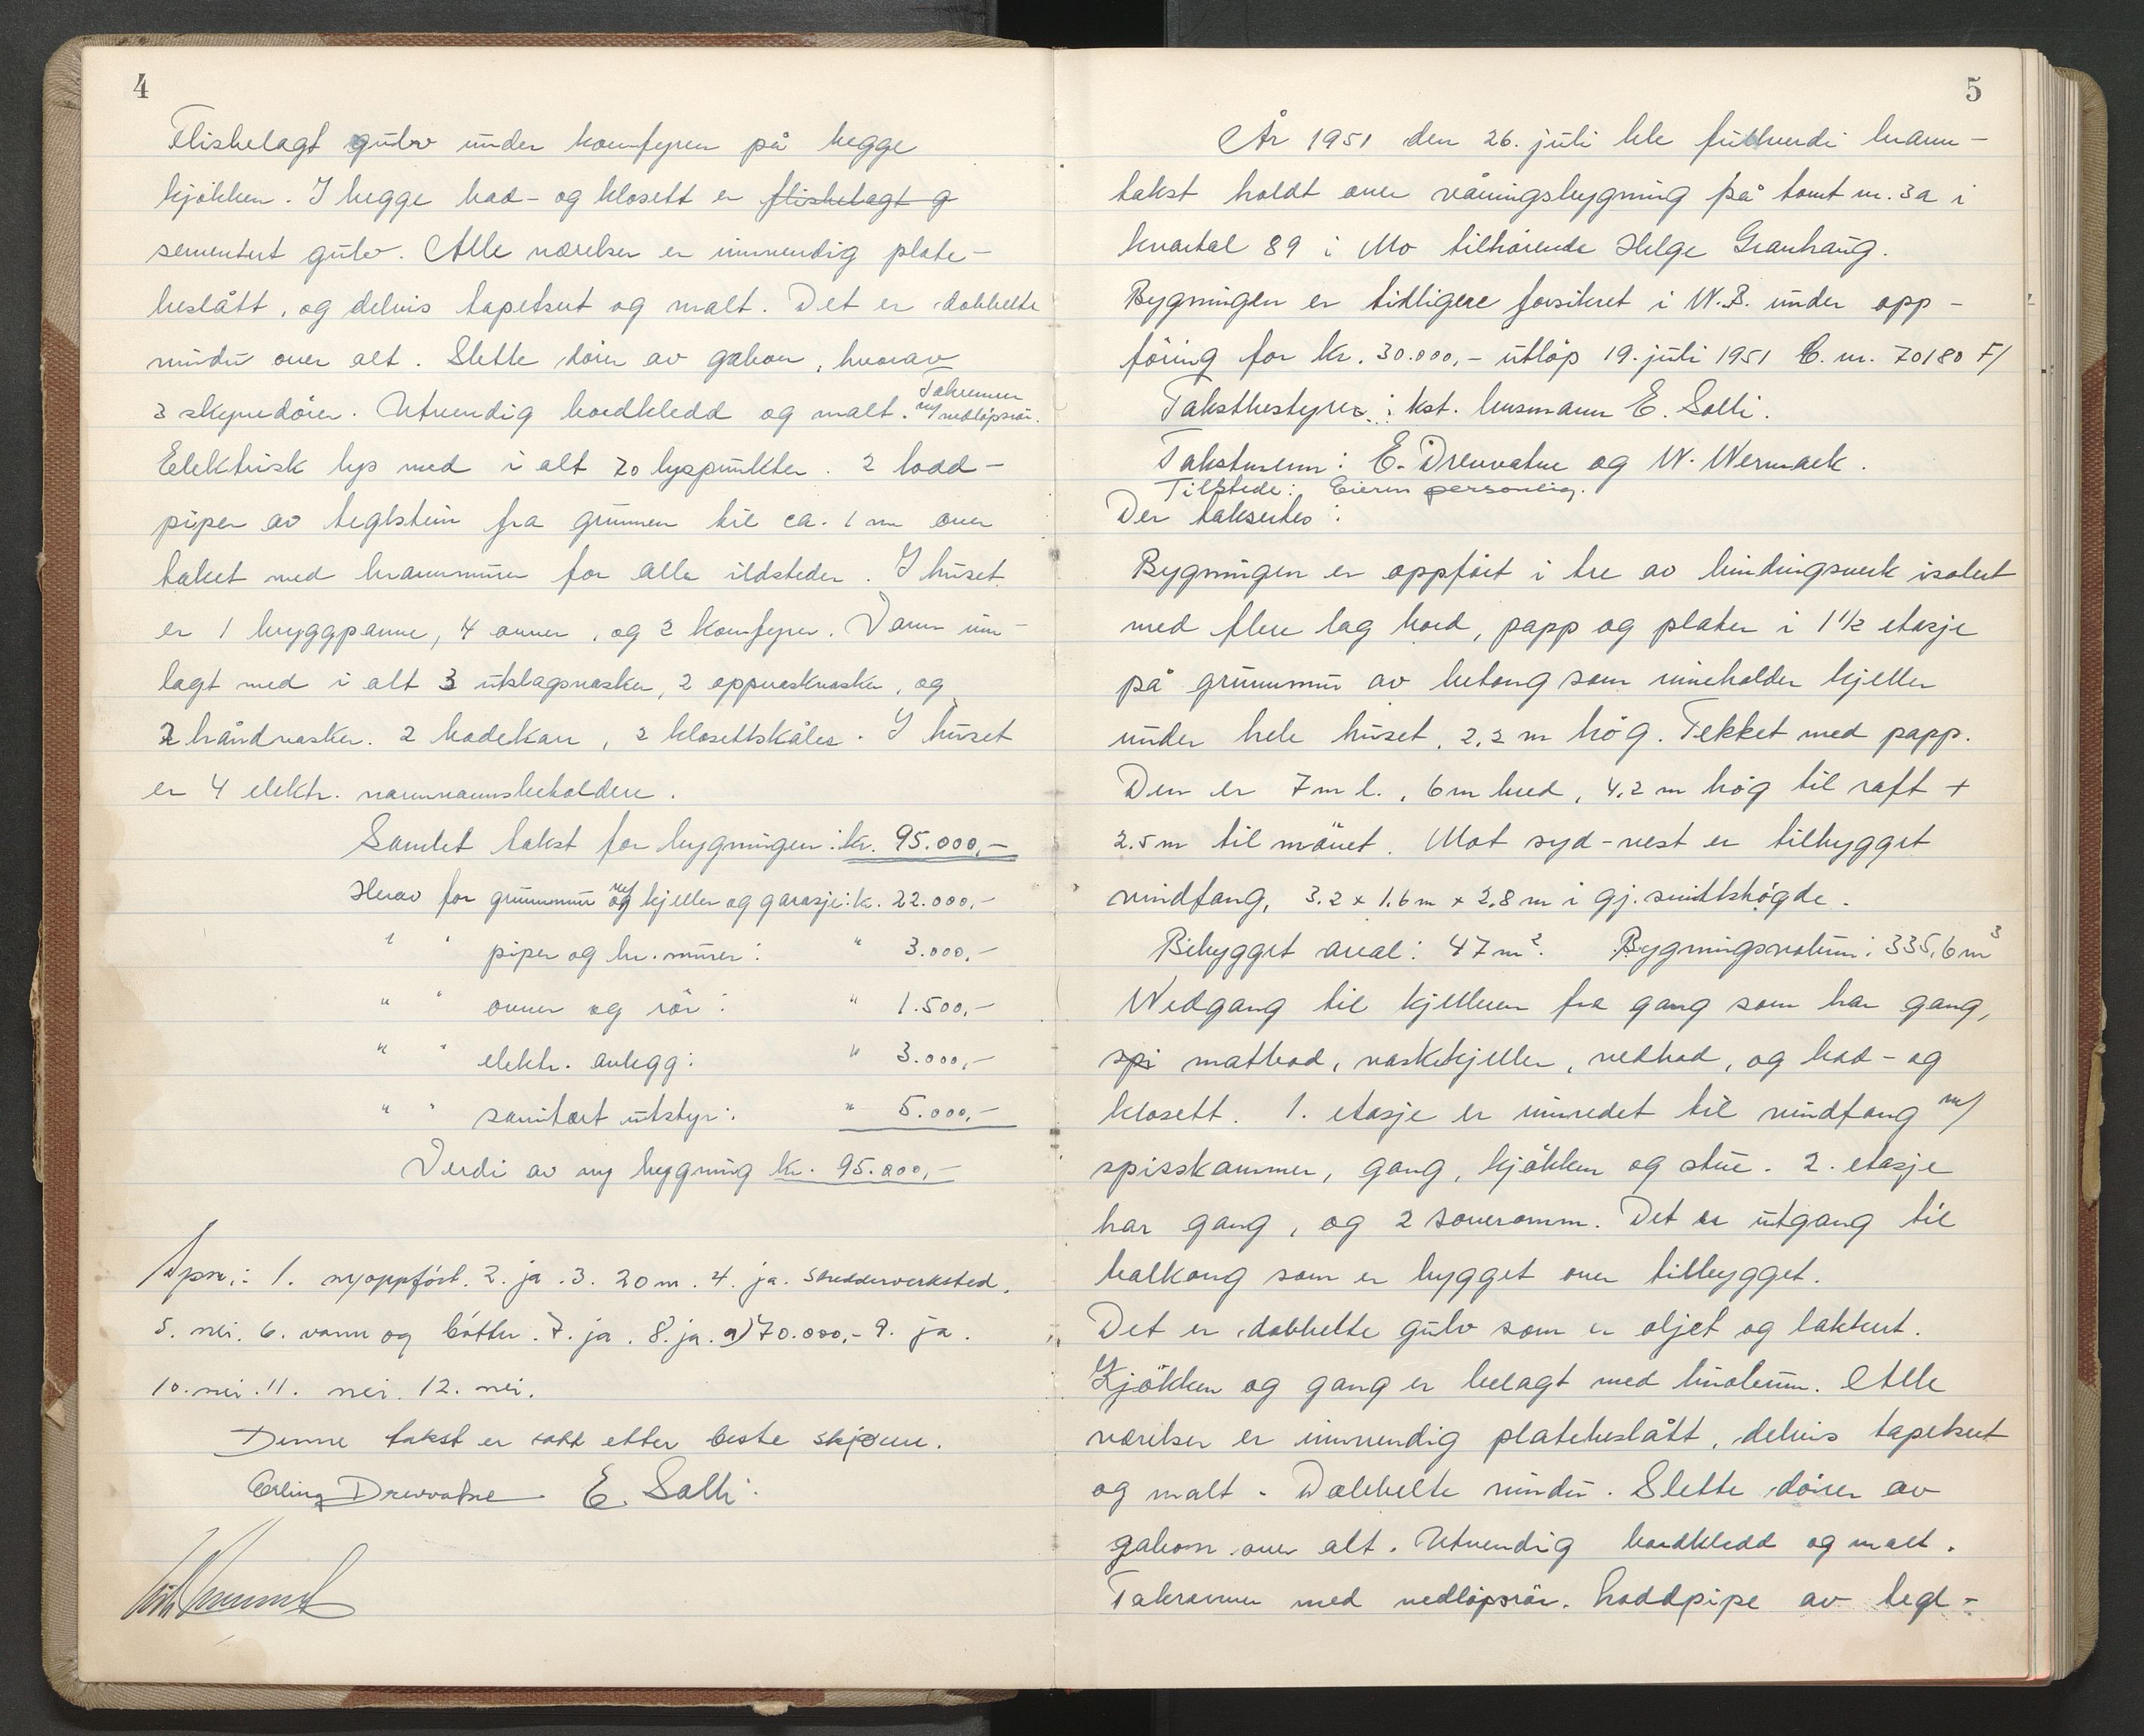 4
Flisbelagt gulv under komfyren på begge
kjökken. I begge bad- og klosett er flisbelagt g
sementert gulv. Alle værelser er innvendig plate-
beslått, og delvis tapetsert og malt. Det er dobbelte
vindu over alt. Slette dörer av gabon, hvorav
3 skyvedörer. Utvendig bordkledd og malt. Takrenner m/nedlöpsrör.
Elektrisk lys med i alt 20 lyspunkter. 2 lodd-
piper av teglstein fra grunnen til ca. 1 m over
taket med brannmurer for alle ildsteder. I huset
er 1 bryggpanne, 4 ovner, og 2 komfyrer. Vann inn-
lagt med i alt 3 utslagsvasker, 2 oppvaskvasker, og
2 håndvasker. 2 badekarr, 2 klosettskåler. I huset
er 4 elektr. varmvannsbeholdere.
Samlet takst for bygningen: kr. 95.000,-
Herav for grunnmur og m/ kjeller og garasje: k. 22.000,-
" " piper og br. murer: " 3.000,-
" " ovner og rör: " 1.500,-
" " elektr. anlegg: " 3.000,-
" " sanitært utstyr: " 5.000,-
Verdi av ny bygning kr. 95.000,-
Spm.: 1. nyoppfört. 2. ja. 3. 20 m. 4. ja. Snedderverksted.
5. nei. 6. vann og bötter. 7. ja. 8. ja. a) 70.000,- 9. ja.
10. nei. 11. nei. 12. nei.
Denne takst er satt etter beste skjönn.
Erling Drevvatne E. Solli.
5
År 1951 den 26. juli ble fullverdi brann-
takst holdt over våningsbygning på tomt nr. 3a i
kvartal 89 i Mo tilhörende Helge Granhaug.
Bygningen er tidligere forsikret i N.B. under opp-
föring for kr. 30.000,- utlöp 19. juli 1951 B. nr. 70180 F/
Takstbestyrer: kst. lensmann E. Solli.
Takstmenn: E. Drevvatne og W. Wermack.
Tilstede: Eieren personlig.
Der takseртes:
Bygningen er oppfört i tre av bindingsverk isolert
med flere lag bord, papp og plater i 1 1/2 etasje
på grunnmur av betong som inneholder kjeller
under hele huset, 2,2 m hög. Tekket med papp.
Den er 7 m l., 6 m bred, 4,2 m hög til raft +
2.5 m til mönet. Mot syd-vest er tilbygget
vindfang, 3.2 x 1.6 m x 2,8 m i gj.snittshögde.
Bebygget areal: 47 m². Bygningsvolum: 335,6 m³
Nedgang til kjelleren fra gang som har gang,
spi matbod, vaskekjeller, vedbod, og bad- og
klosett. 1. etasje er innredet til vindfang m/
spisskammer, gang, kjökken og stue. 2. etasje
har gang, og 2 soveromm. Det er utgang til
balkong som er bygget over tilbygget.
Det er dobbelte gulv som er oljet og lakkert.
Kjökken og gang er belagt med linoleum. Alle
værelser er innvendig platebeslått, delvis tapetsert
og malt. Dobbelte vindu. Slette dörer av
gabon over alt. Utvendig bordkledd og malt.
Takrenner med nedlöpsrör. Loddpipe av tegl-